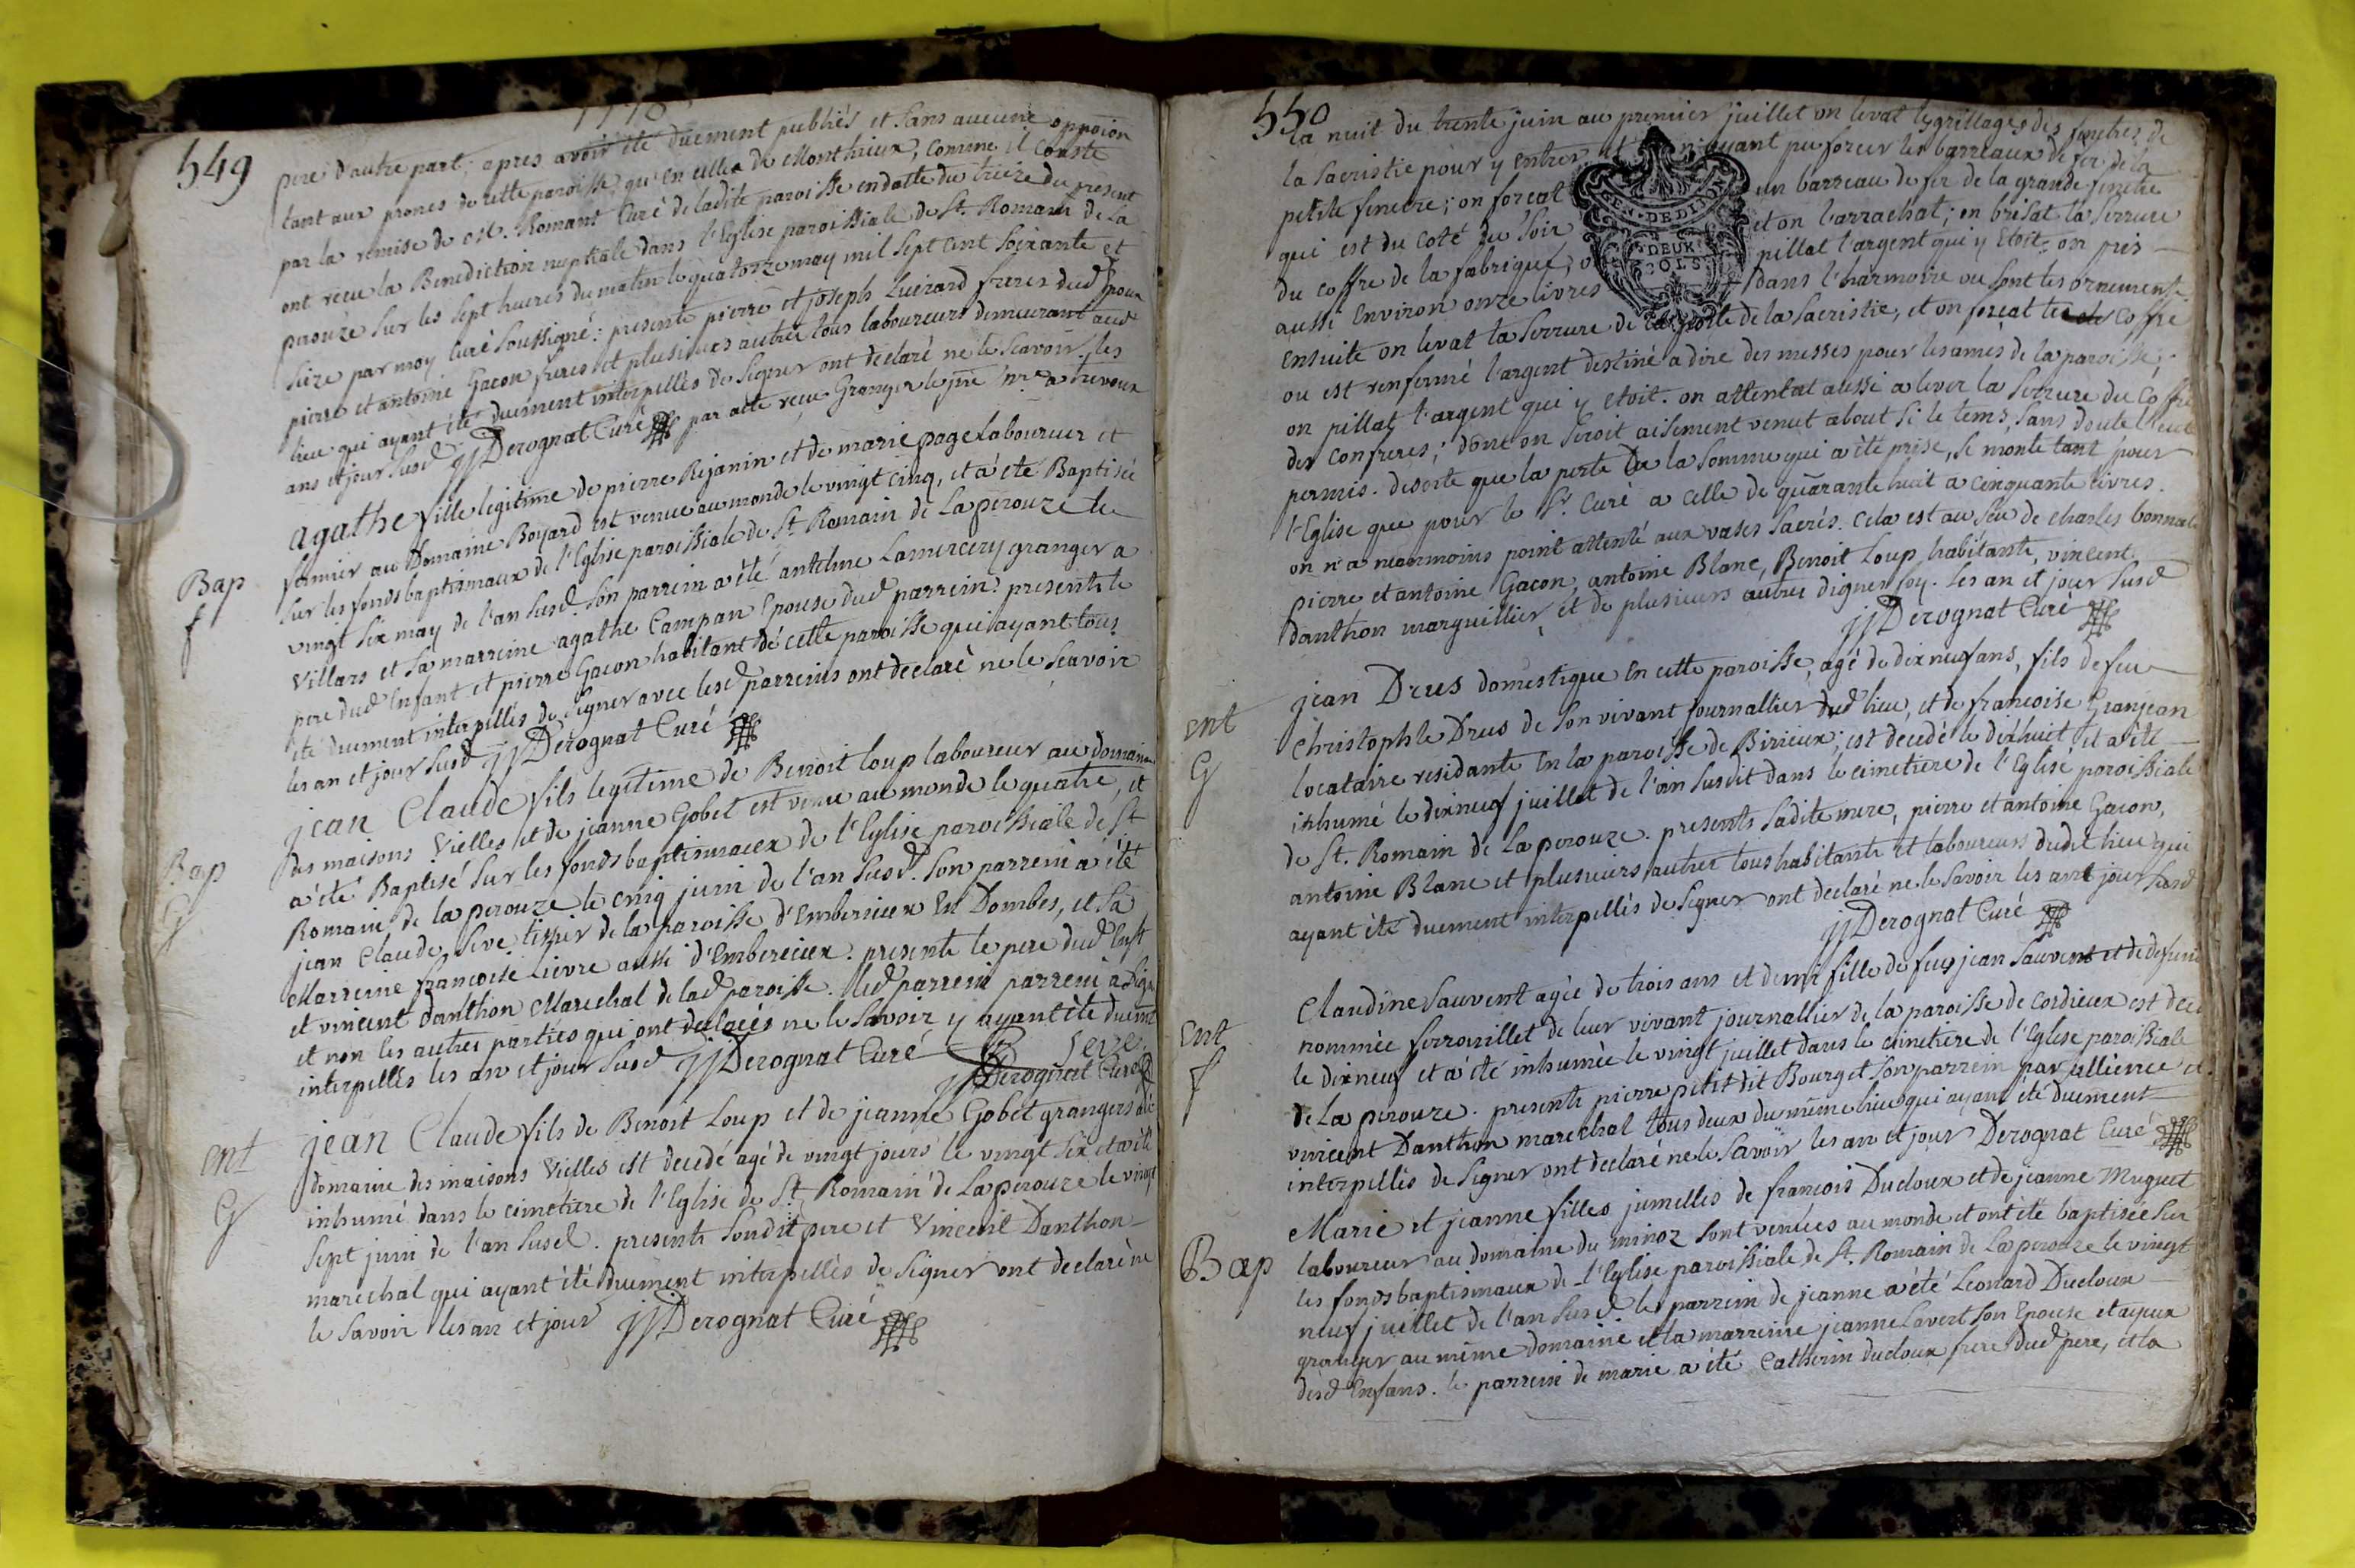 549
pere d'autre part; apres avoir été duement publiés et sans aucune oppoion
tant aux prones de cette paroisse, qu'en celles de Monthieux, comme il conste
par la remise de Mr. Romans Curé de ladite paroisse en datte du treize du present
ont reçu la Benediction nuptiale dans l'Eglise paroissiale de St. Romain de La
perouze sur les sept heures du matin le quatorze may mil sept cent soixante et
seize par moy curé soussigné: presents pierre et joseph Luirard freres dud Epoux
pierre et antoine Gacon freres et plusieurs autres tous laboureurs demeurant aud
lieu qui ayant été duement interpellés de signer ont declaré ne le scavoir, les
ans et jour susd jjDerognat Curé par acte reçu Granger le jne nre a trevoux
Bap
f
agathe fille legitime de pierre Rejanin et de marie page Laboureur et
fermier au Domaine Boyard est venue au monde le vingt cinq, et a été Baptisée
sur les fonds baptismaux de l'Eglise paroissiale de St Romain de La perouze le
vingt six may de l'an susd son parrein a été antelme Lamercery granger a
Villars et sa marreine agathe Campan Epouse dud parrein: presents le
pere dud Enfant et pierre Gacon habitant de cette paroisse qui ayant tous
été duement interpellés de signer avec lesd parreins ont declaré ne le scavoir
les an et jour susd jjDerognat Curé
Bap
G
jean Claude fils legitime de Benoit Loup laboureur au domaine
des maisons Vielles et de jeanne Gobet est venu au monde le quatre, et
a été Baptisé sur les fonds baptismaux de l'Eglise paroissiale de St
Romain de la perouze le cinq juin de l'an susd. son parrein a été
jean Claude Seve tissier de la paroisse d'Embericux En Dombes, et sa
Marreine francoise Lievre aussi d'Embericux. presents le pere dud Enft
et vincent danthon Marechal de lad paroisse. led parrein parrein a signé
et non les autres parties qui ont declarés ne le savoir y ayant été duemt
interpellés les an et jour susd jjDerognat Curé Seve
jjDerognat Curé
ent
G
jean Claude fils de Benoit Loup et de jeanne Gobet grangers au
domaine des maisons Vielles est decedé agé de vingt jours le vingt six et a été
inhumé dans le cimetiere de l'Eglise de St Romain de La perouze le vingt
sept juin de l'an susd. presents sondit pere et Vincent Danthon
marechal qui ayant été duement interpellés de signer ont declaré ne
le savoir les an et jour jjDerognat Curé
550
la nuit du trente juin au premier juillet on levat les grillages des fenetres de
la sacristie pour y entrer et n'ayant pu forcer les barreaux de fer de la
petite fenetre; on forcat un barreau de fer de la grande fenetre
qui est du coté du soir et on l'arrachat; on brisat la serrure
du coffre de la fabrique, pillat l'argent qui y etoit; on pris
aussi environ onze livres dans l'harmoire ou sont les ornements.
GEN. DE DIJON
DEUX
SOLS
ensuite on levat la serrure de la porte de la sacristie, et on forcat le coffre
ou est renfermé l'argent destiné a dire des messes pour les ames de la paroisse;
on pillat l'argent qui y etoit. on attentat aussi a lever la serrure du coffre
des confreres; dont on seroit aisement venut about si le tems, sans doute l'eut
permis. desorte que la perte de la somme qui a été prise, se monte tant pour
l'Eglise que pour le Sr Curé a celle de quarante huit a cinquante livres.
on n'a neanmoins point attenté aux vases sacrés. cela est au seu de charles bonnabe
pierre et antoine Gacon, antoine Blanc, Benoit Loup habitants, vincent
danthon marguillier, et de plusieurs autres dignes foy. les an et jour susd
jjDerognat Curé
ent
G
jean Drus domestique En cette paroisse, agé de dix neuf ans, fils de feu
Christophle Drus de son vivant journallier dud lieu, et de francoise Granjean
locataire residante En la paroisse de Birieux; est decedé le dixhuit et a été
inhumé le dixneuf juillet de l'an susdit dans le cimetiere de l'Eglise paroissiale
de St. Romain de La perouze. presents sadite mere, pierre et antoine Gacon,
antoine Blanc et plusieurs autres tous habitants et laboureurs dudit lieu qui
ayant été duement interpellés de signer ont declaré ne le savoir les an et jour susd
jjDerognat Curé
Ent
f
Claudine Sauvent agée de trois ans et demi fille de feu jean Sauvent et de defunte
nommée ferrouillet de leur vivant journallier de la paroisse de cordieux est deced
le dixneuf et a été inhumée le vingt juillet dans le cimetiere de l'Eglise paroissiale
de La perouze. presents pierre petit dit Bourget son parrein par allience et
vincent Danthon marechal tous deux du même lieu qui ayant été duement
interpellés de signer ont declaré ne le savoir les an et jour Derognat Curé
Bap
Marie et jeanne filles jumelles de francois Ducloux et de jeanne Muguet
laboureur au domaine du minoz sont venues au monde et ont été baptisée sur
les fonds baptismaux de l'Eglise paroissiale de St. Romain de La perouze le vingt
neuf juillet de l'an susd le parrein de jeanne a été Leonard Ducloux
granger au même domaine et la marreine jeanne Lavert son Epouse et ayeux
desd Enfans. le parrein de marie a été Catherin ducloux frere dud pere, et la